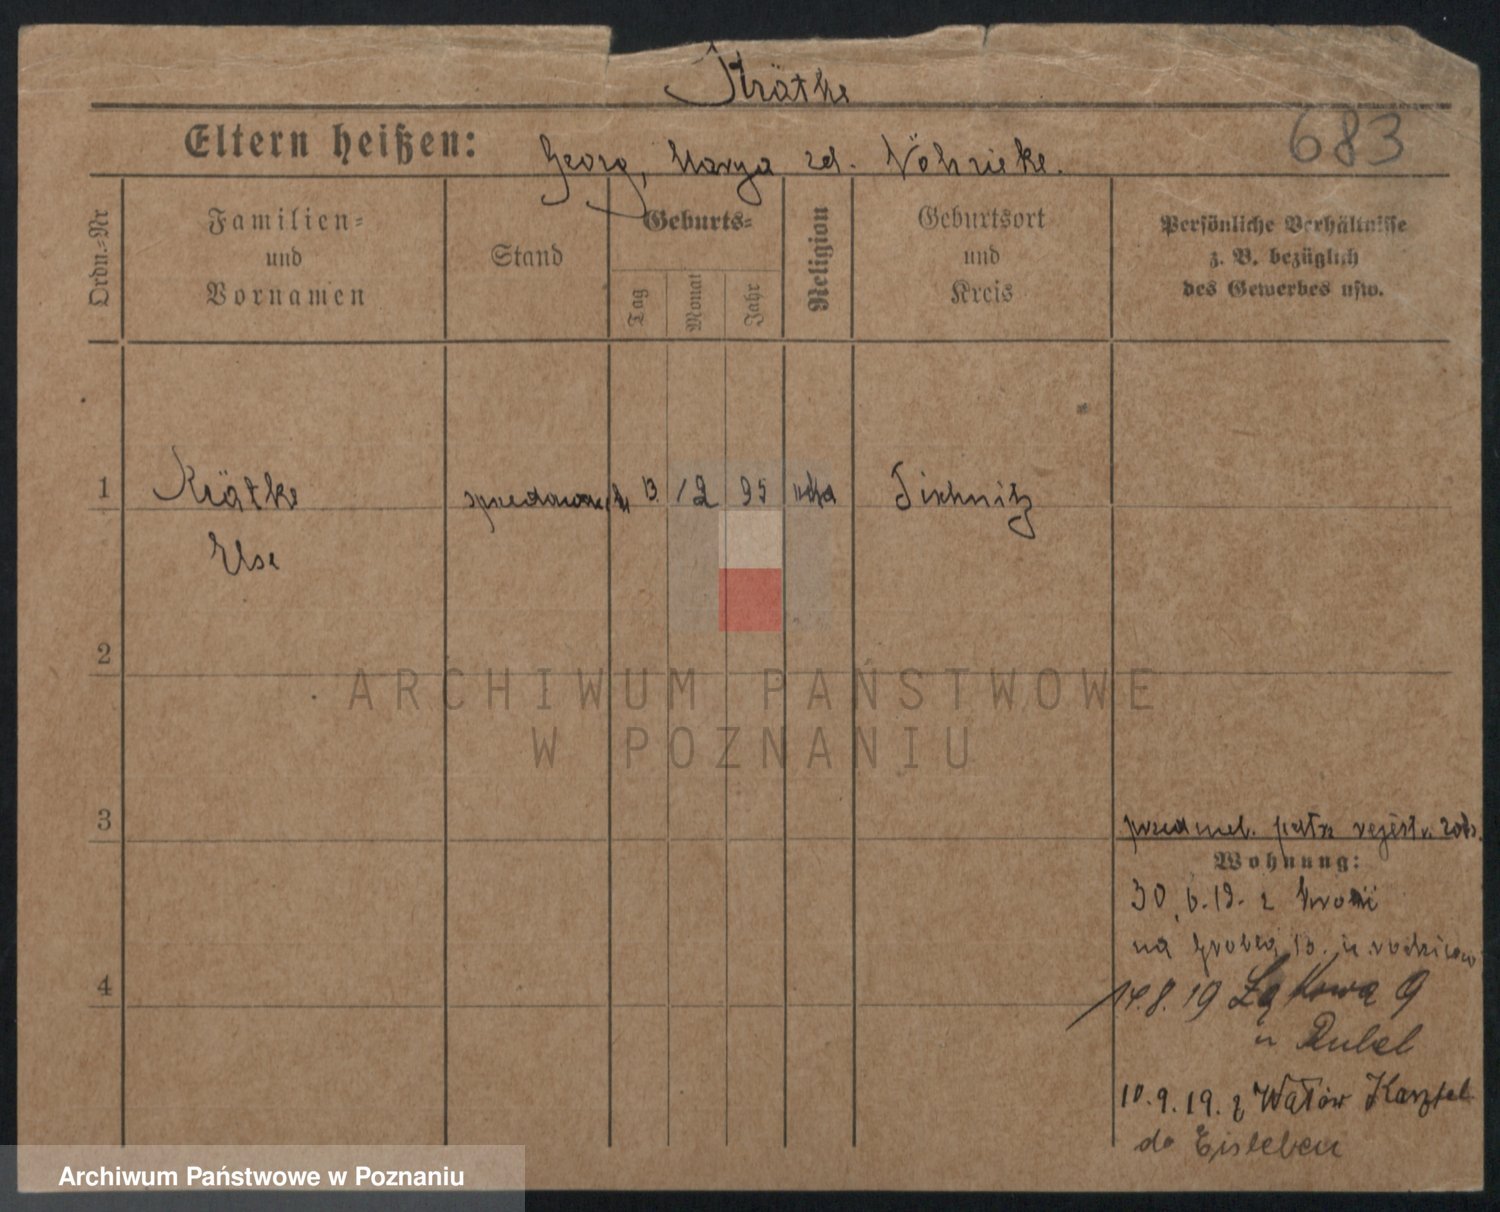 Kräthe
683
Eltern heißen: Georg, Marya zd. Nöhricke.
Ordn.-Nr
Familien-
und
Vornamen
Stand
Geburts-
Tag
Monat
Jahr
Religion
Geburtsort
und
Kreis
Persönliche Verhältnisse
z. B. bezüglich
des Gewerbes usw.
1 Krätke 13 12 95
Else
2
3
Wohnung:
30.6.19. z
na Grobla 13. u rodziców
4
14.8.19 Łąkowa 9
u Rubel
10.9.19. z Wałów
do Eisleben
ARCHIWUM PAŃSTWOWE
W POZNANIU
Archiwum Państwowe w Poznaniu